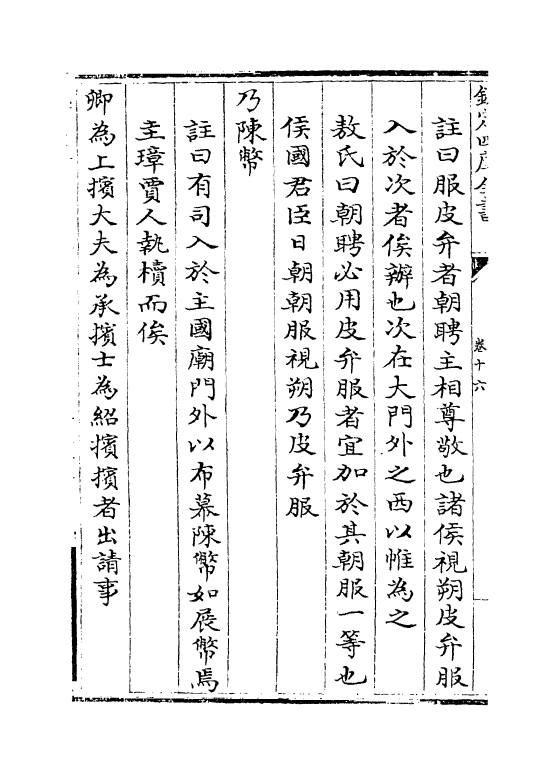 欽定四庫全書
卷十六
註曰服皮弁者朝聘主相尊敬也諸侯視朔皮弁服
入於次者俟辦也次在大門外之西以帷為之
敖氏曰朝聘必用皮弁服者宜加於其朝服一等也
侯國君臣日朝朝服視朔乃皮弁服
乃陳幣
註曰有司入於主國廟門外以布幕陳幣如展幣焉
圭璋賈人執櫝而俟
卿為上擯大夫為承擯士為紹擯擯者出請事